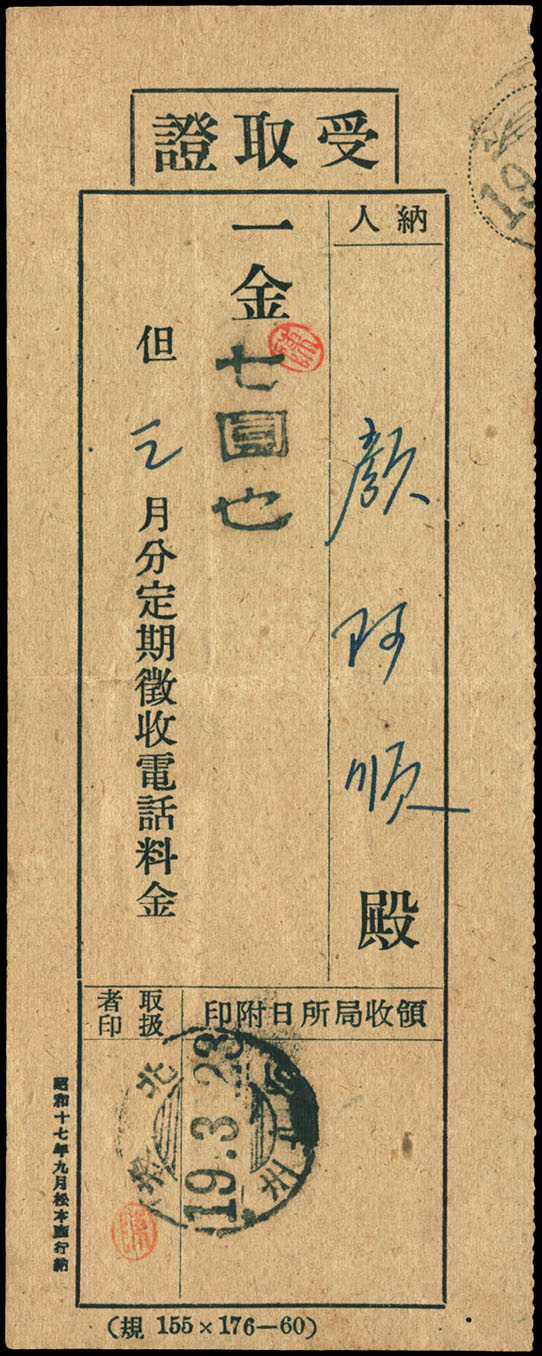 受取證
納人
顏阿順殿
一金七圓也
但三月分定期徵收電話料金
領收局所日附印
取扱者印
19.3.23
北
州
陳
19
昭和十七年九月松本商行納
(規 155×176—60)